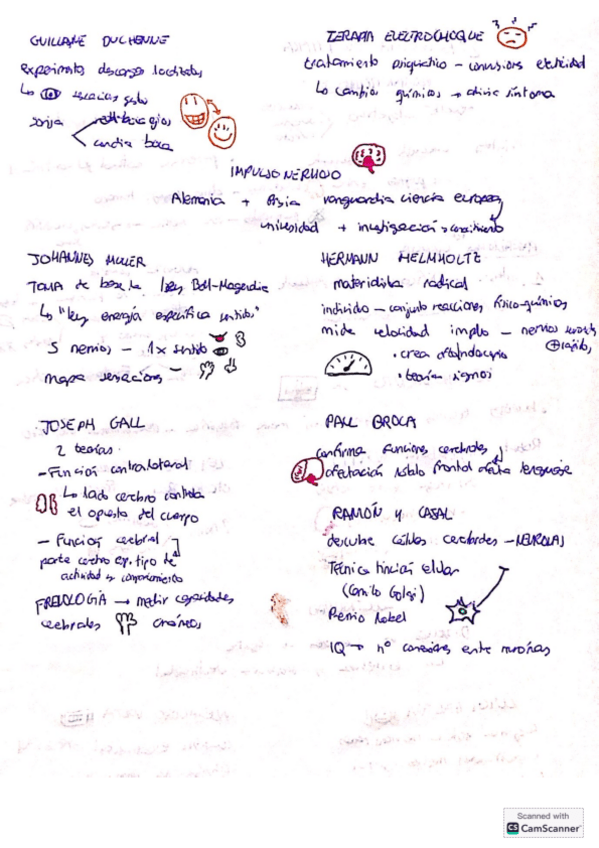 GUILLAME DUCHENNE
experimentos descargas localizadas
↳ expresiones gesto
sonrisa
cambia boca
TERAPIA ELECTROCHOQUE
tratamiento psiquiatrico - convulsiones electricidad
↳ cambios químicos → alivia síntoma
IMPULSO NERVIOSO
Alemania + Prusia vanguardia ciencia europea
universidad + investigación > conocimiento
JOHANNES MULLER
TOMA de base la ley Bell-Magendie
↳ "ley energía específica sentidos"
5 nervios - 1 x sentido
mapa sensaciones -
HERMANN HELMHOLTZ
materialista radical
individuo - conjunto reacciones físico-químicas
mide velocidad impulso - nervios
⊕ rápidos
• crea oftalmoscopio
• teoría signos
JOSEPH GALL
2 teorías
- Función contralateral
↳ lado cerebro controla
el opuesto del cuerpo
- Función cerebral
parte cerebro esp. tipo de
actividad y comportamiento
FRENOLOGÍA → medir capacidades
cerebrales cráneos
PAUL BROCA
confirma funciones cerebrales
afectación lóbulo frontal afecta lenguaje
RAMÓN Y CAJAL
descubre células cerebrales - NEURONAS
Técnica tinción celular
(Camilo Golgi)
Premio Nobel
IQ → nº conexiones entre neuronas
Scanned with
CS CamScanner